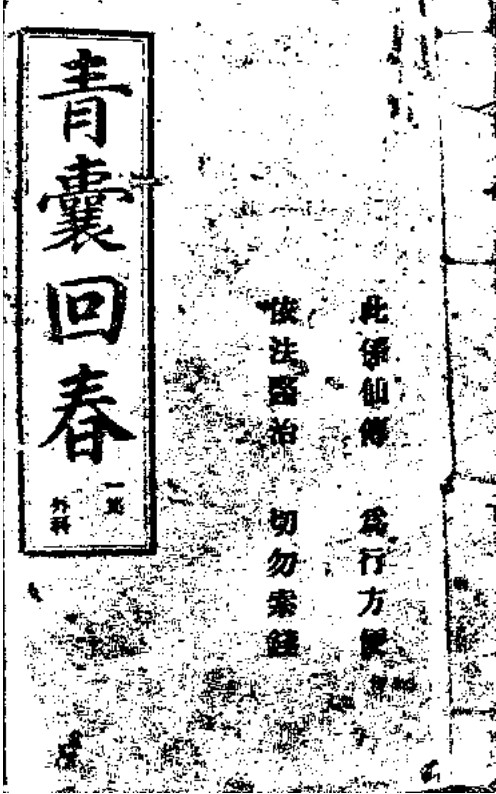 此係仙傳 為行方便
依法醫治 切勿索錢
青囊回春
外科